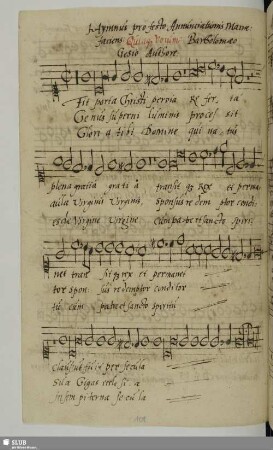 Hymnus pro festo Annunciationis Mariae
faciens Quinq₃ Vocum Bartholomaeo
Gesio Authore
Fit porta Christi pervia Re fer ta
Ge nus superni luminis proces sit
Glori a tibi Domine qui na tus
plena gratia gra ti a transit q₃ Rex et perma
aulla Virginis Virginis, Sponsus re dem ptor condi
es de Virgine Virgine Cum patre et sancto spiri
net tran sit q₃ rex et permanet
tor spon sus redemptor conditor
tu cum patre et sancto spiritu
Clausus ut fuit per secula
Suae Gigas eccle si ae
in sempiterna secula
SLUB